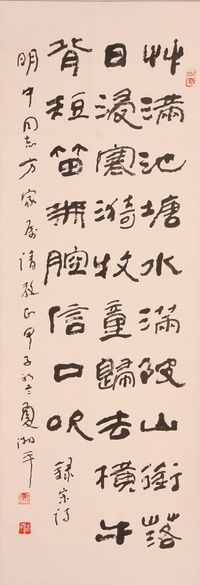 艸滿池塘水滿陂山銜落
日浸寒漪牧童歸去橫牛
背短笛無腔信口吹
錄宋詩
明中同志方家屬請教正甲子初夏湘平